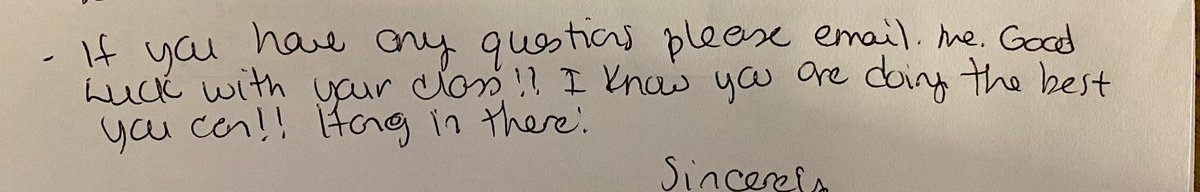 - If you have any questions please email. me. Good
Luck with your class!! I know you are doing the best
you can!! Hang in there!
Sincerely